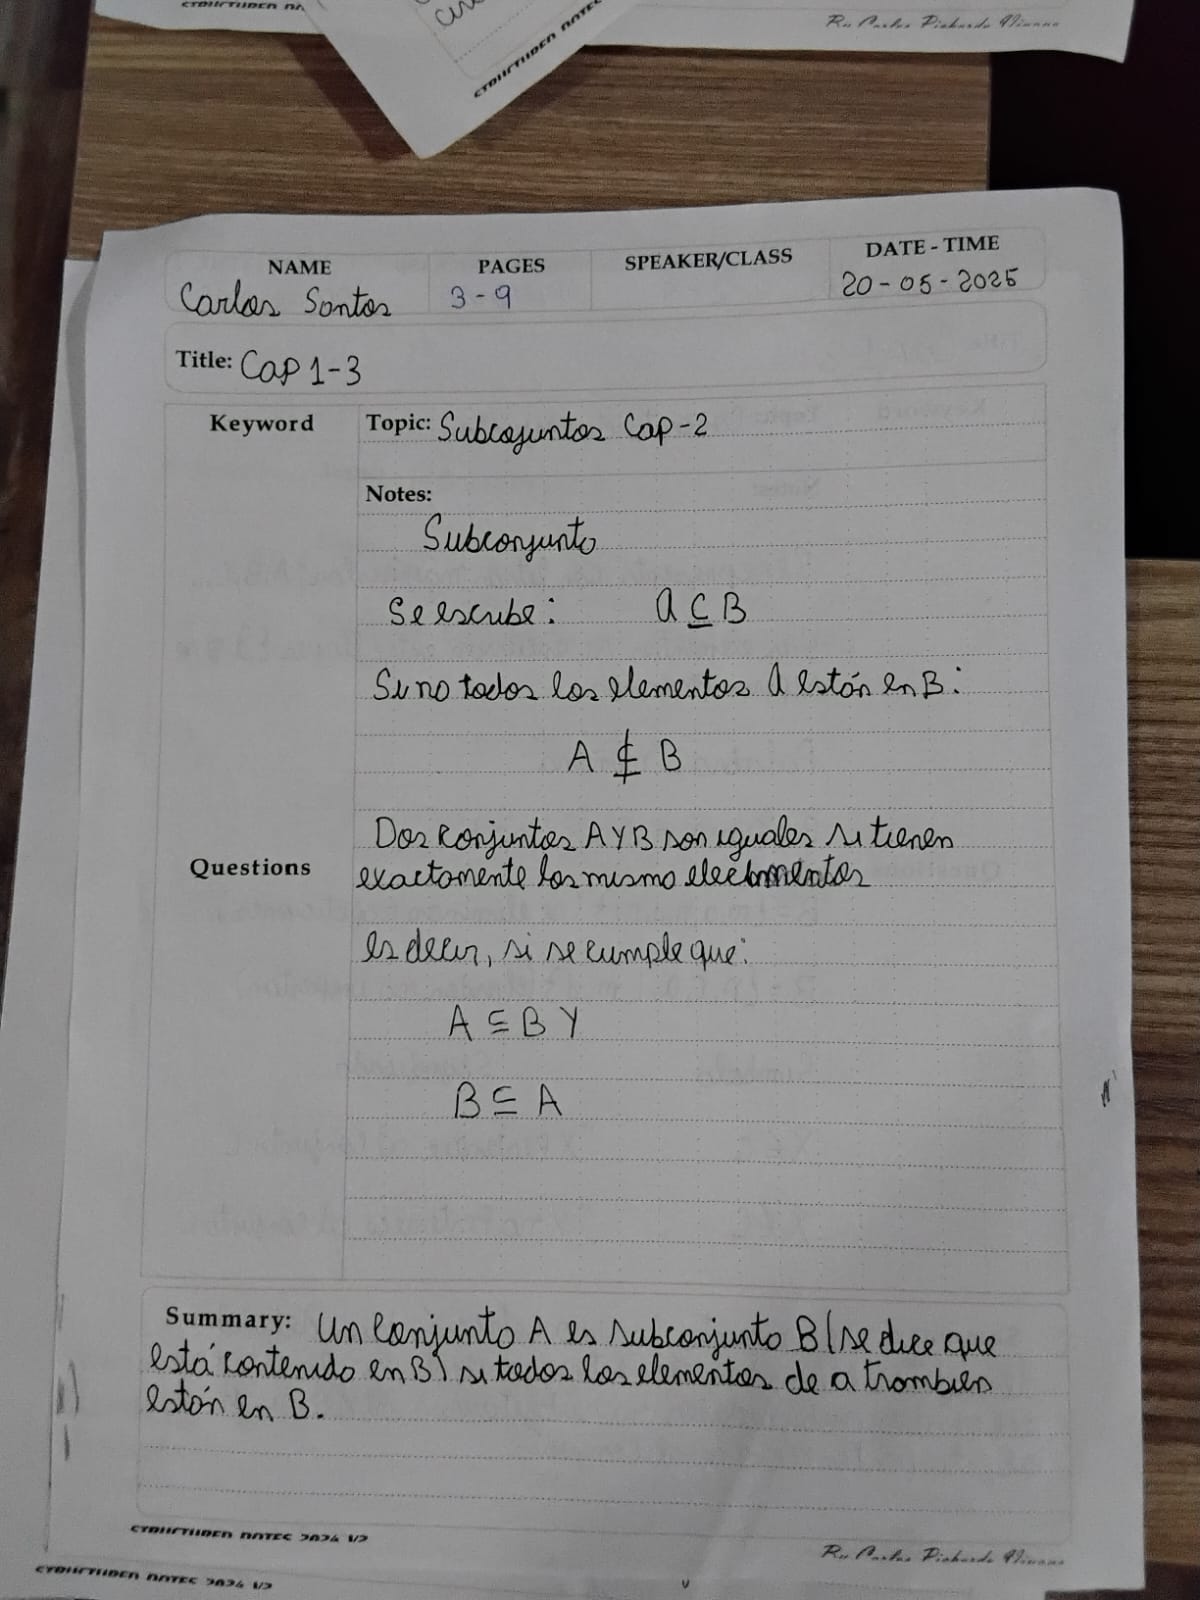 STRUCTURED NOTES
NAME
PAGES
SPEAKER/CLASS
DATE - TIME
Carlos Santos
3 - 9
20 - 05 - 2025
Title: Cap 1-3
Keyword
Topic: Subcojuntos Cap-2
Notes:
Subconjunto
Se escribe: A ⊆ B
Si no todos los elementos A están en B:
A ⊈ B
Questions
Dos conjuntos A y B son iguales si tienen
exactamente los mismo
es decir, si se cumple que:
A ⊆ B y
B ⊆ A
Summary: Un conjunto A es subconjunto B (se dice que
está contenido en B) si todos los elementos de a trambien
están en B.
STRUCTURED NOTES 2024 V2
STRUCTURED NOTES 2024 V2